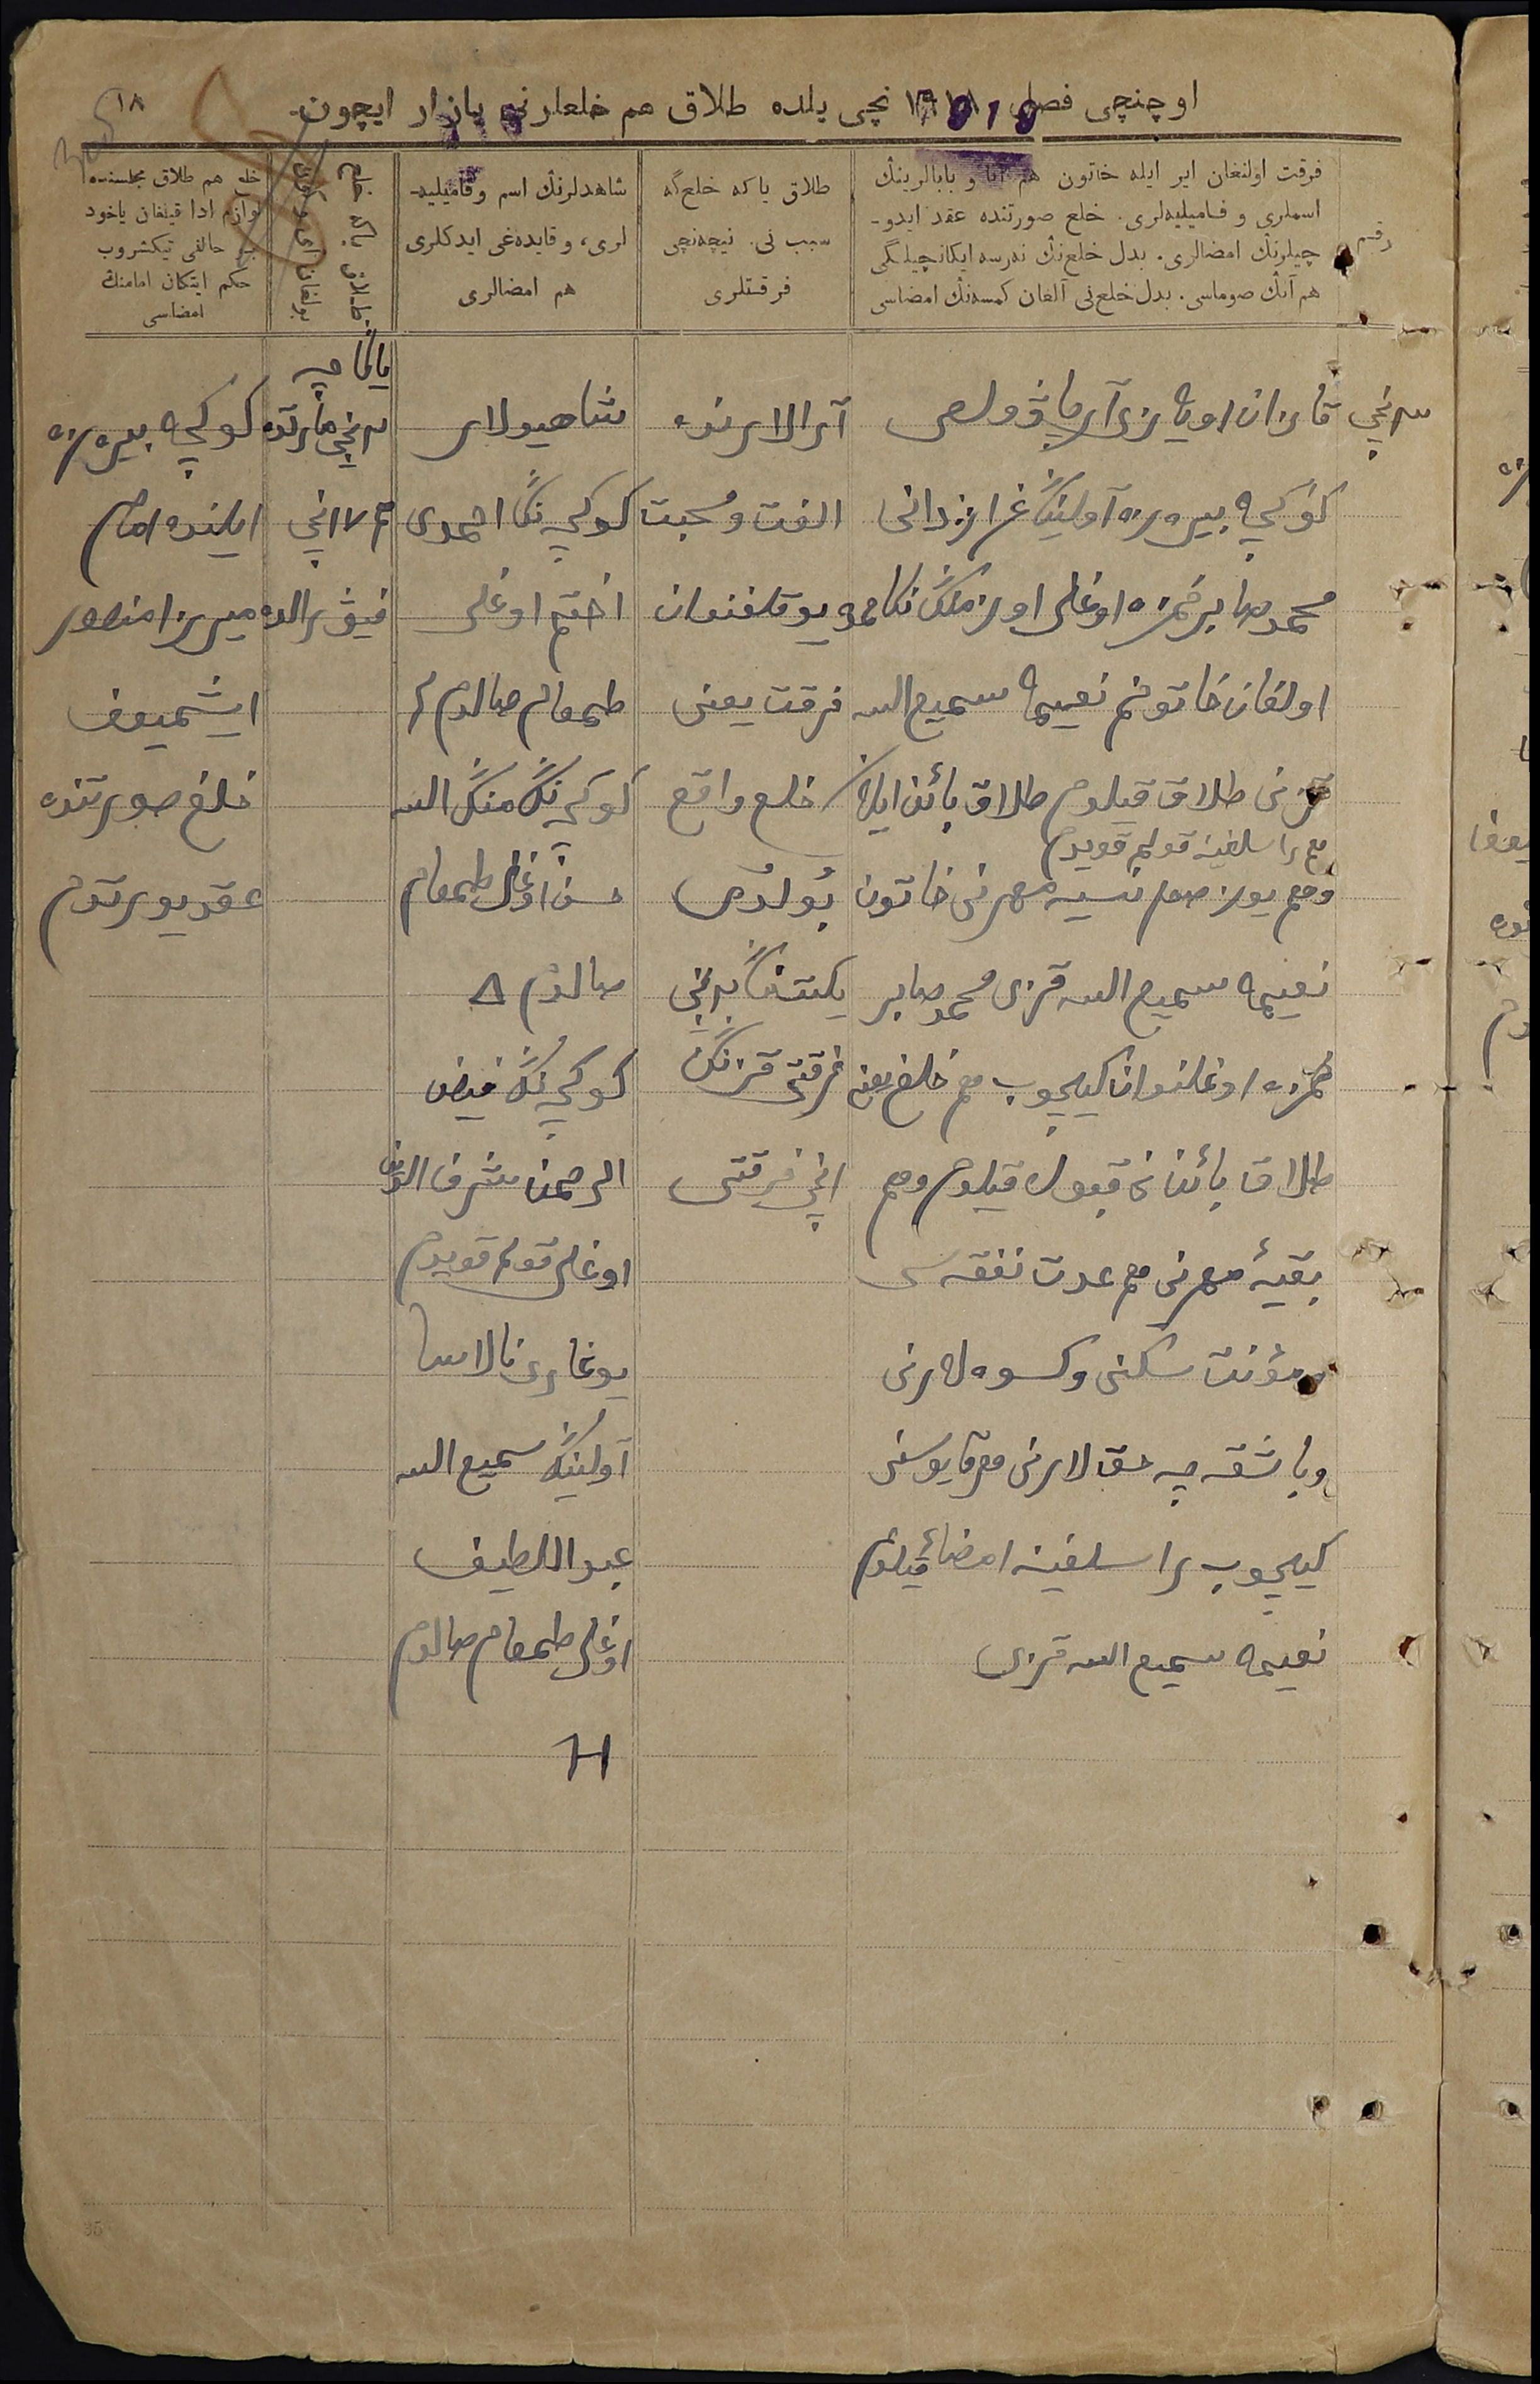 ۱۸
اوچنچی فصل ۱۹۱۸ نچی یلده طلاق هم خلعلرنی یازار ایچون.
رقم
فرقت اولنغان ایر ایله خاتون هم آتا و بابالرینڭ
اسملری و فامیلیه‌لری. خلع صورتنده عقد ایدو-
چیلرنڭ امضالری. بدل خلع‌نڭ نه‌رسه ایکانچیلگی
هم آنڭ صوماسی. بدل خلع‌نی آلغان کمسه‌نڭ امضاسی
طلاق یا که خلع‌گه
سبب نی. نیچه‌نچی
فرقتلری
شاهدلرنڭ اسم و فامیلیه-
لری، و قایده‌غی ایدکلری
هم امضالری
طلاق یا که خلع
بولغان آی و کون
خلع هم طلاق مجلسنده
لوازم ادا قیلغان یاخود
حالنی تیکشروب
حکم ایتکان امامنڭ
امضاسی
برنچی
قازان اویازی آریا ڤولصی
کوکچه بیره‌زه آولینڭ غرا یزدانی
محمد صابر حمزه اوغلی اوزمنڭ نکاحمده
اولغان خاتونم نعیمه سمیع الله
قزنی طلاق قیلدم طلاق بائن ایله
راسلغینه قولم قویدم
وهم یوز صوم نسیه مهرنی خاتون
نعیمه سمیع الله قزی محمد صابر
حمزه اوغلندان کیچوب هم خلع یعنی
طلاق بائن‌نی قبول قیلدم وهم
بقیۀ مهرنی هم عدت نفقه‌سی
ومؤنت سکنی وکسوه لرنی
وباشقه چه حقلارنی هرقایوسنی
کیچوب راسلغینه امضا قیلدم
نعیمه سمیع الله قزی
آرالارنده
الفت ومحبت
یوقلغندان
فرقت یعنی
خلع واقع
بولدی
یکتنڭ برنچی
فرقتی قزنڭ
انچی فرقتی
شاهیدلار
کوکچه‌نڭ احمدی
اوغلی
طمغام صالدم
کوکچه‌نڭ منڭ الله
حسن اوغلی طمغام
صالدم ۸
کوکچه‌نڭ فیض
الرحمن شرف الدین
اوغلی قولم قویدم
یوغاری
آولینڭ سمیع الله
عبد اللطیف
اوغلی طمغام صالدم
H
یاڭاچه
برنچی مارتده
۱۷نچی
فیورالده
کوکچه بیره‌زه
ایلنده امام
میرزا منصور
ایشمیوف
خلع صورتنده
عقد یورتدم